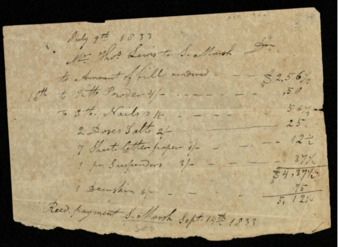 July 9th 1833
Mr Thos Lewis to S. Marsh Dr
to Amount of bill rendered $2,56½
16th to Putt Powder 3/- ,50
to 3 lb. Nails 
2 Doses Salts 2/- 25
7 Sheets letter paper 12½
1 pr Suspenders 3/- 37½
$4,37½
1 75
5,12½
Recd payment S. Marsh Sept. 14th 1833